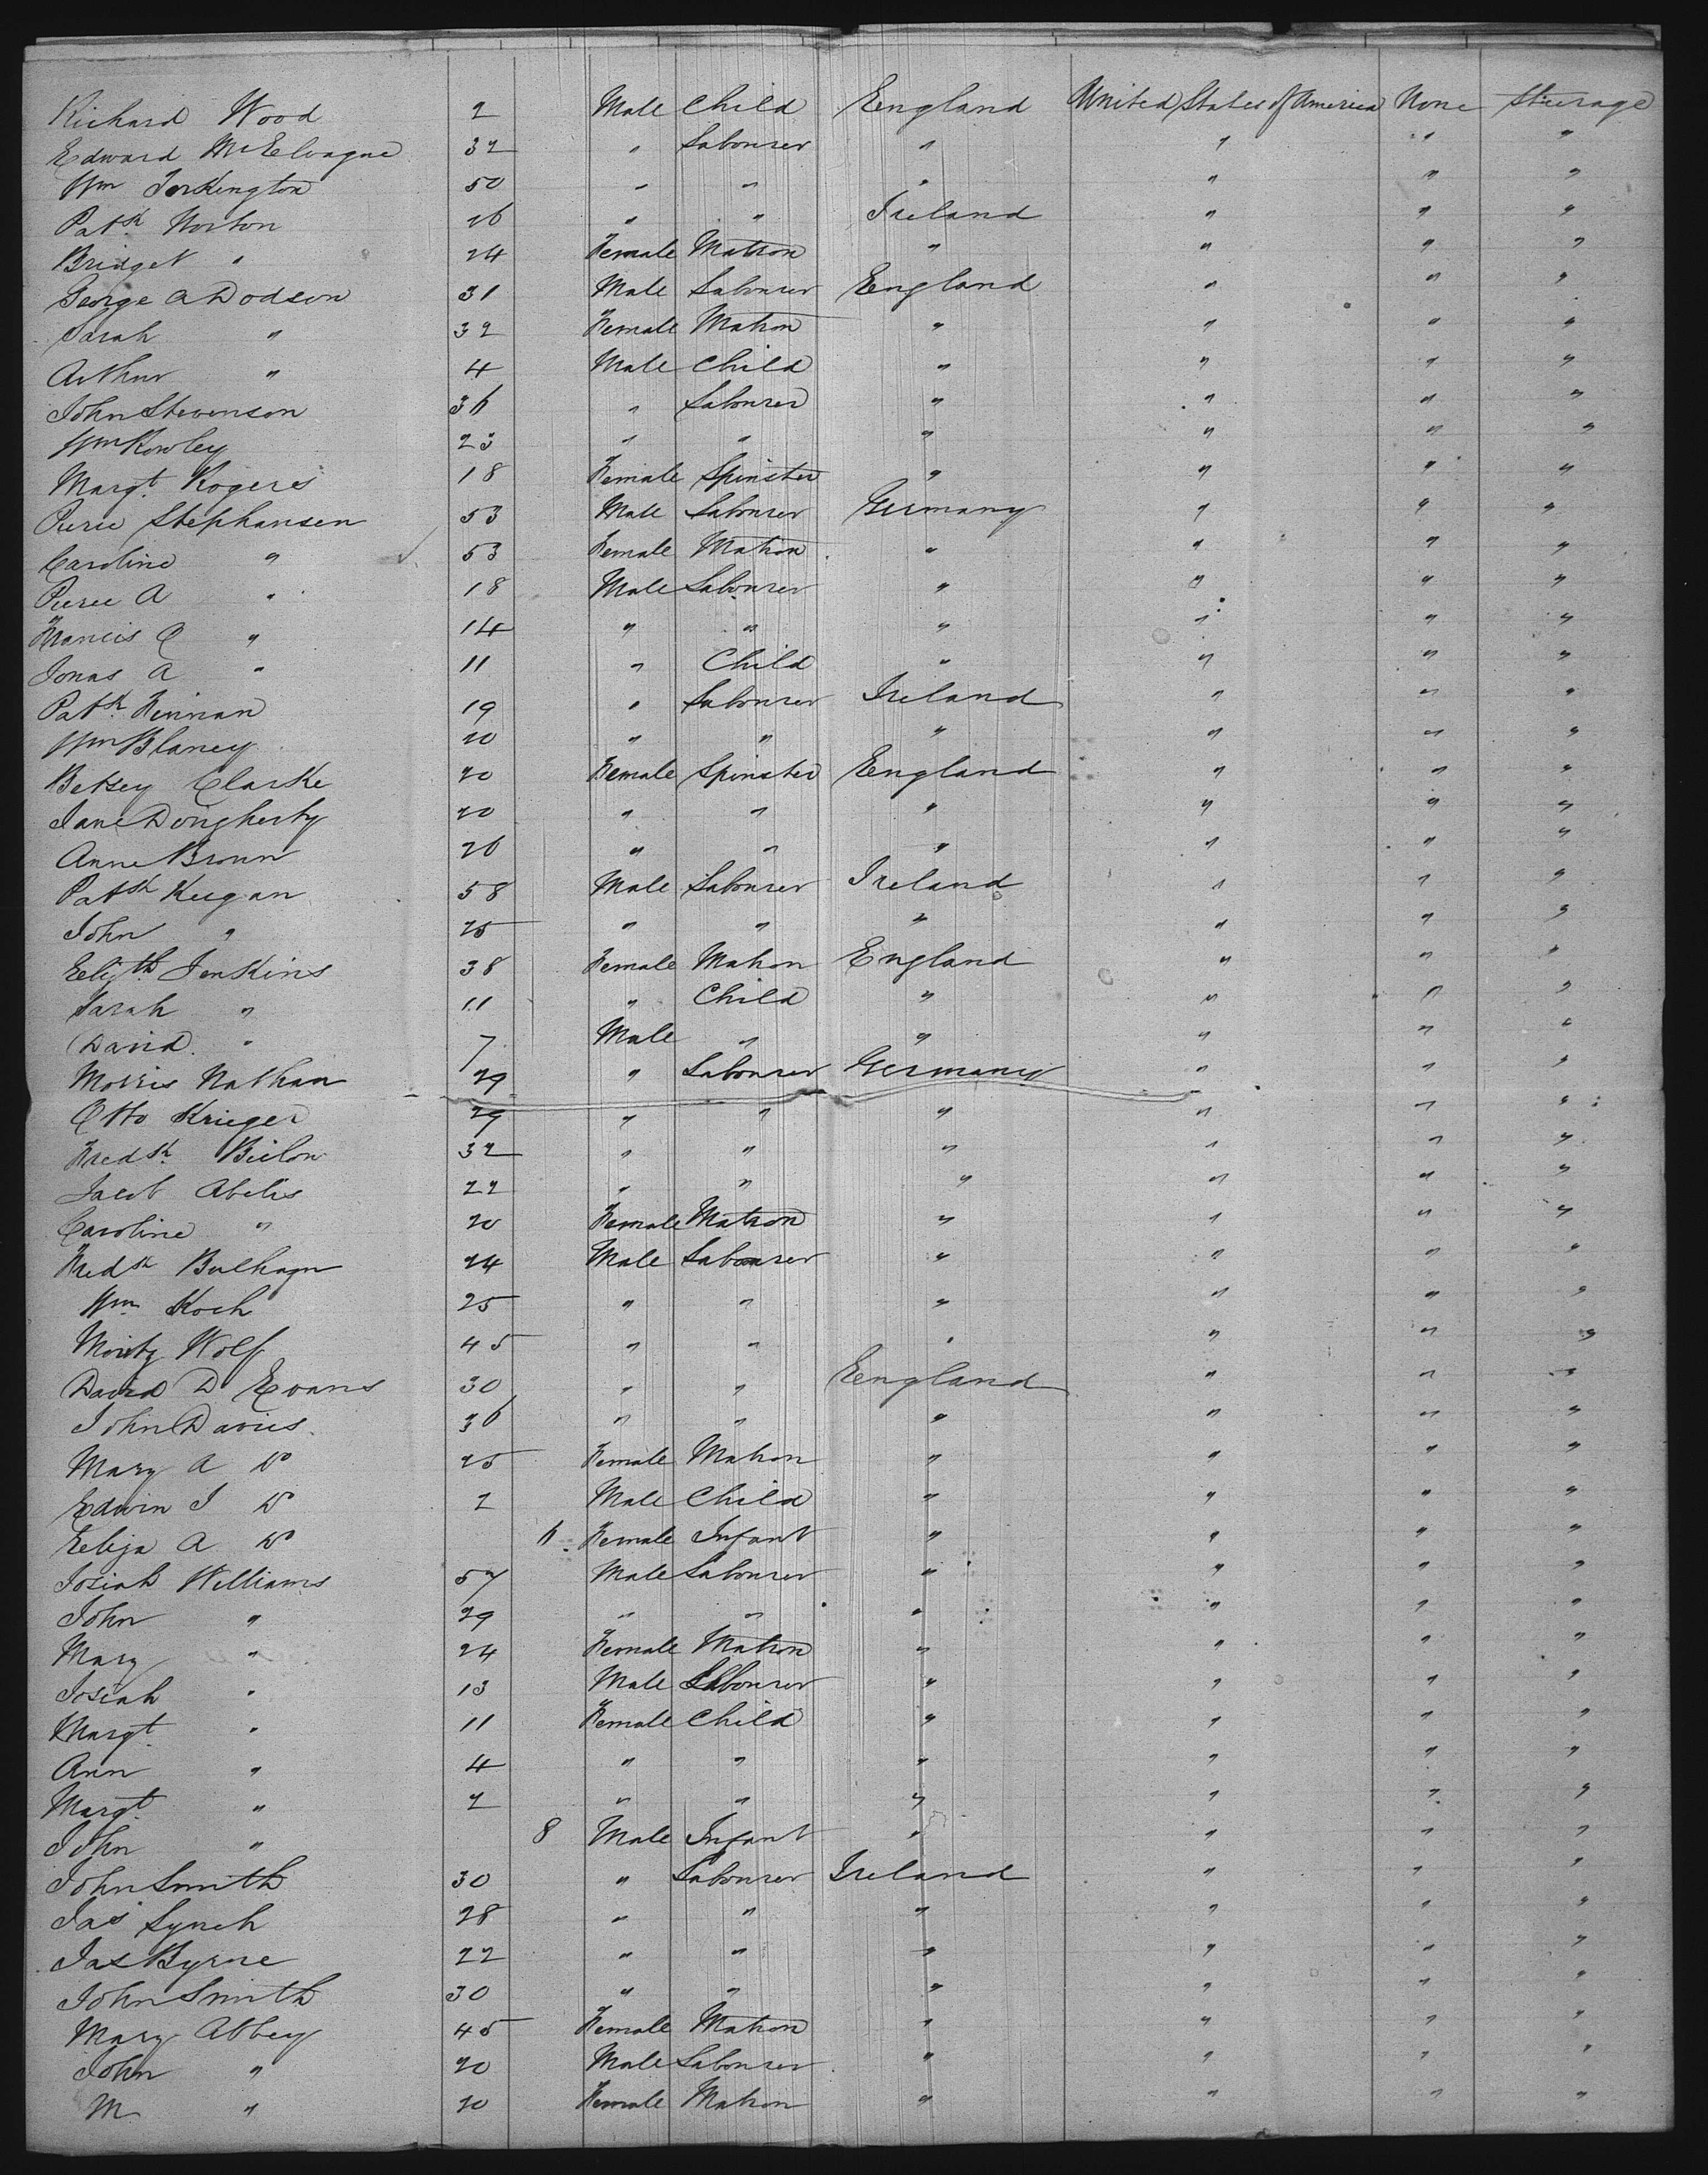 Richard Wood 2 Male Child England United States of America None Steerage
Edward McElvague 32 " Labourer " " " "
Wm Torkington 50 " " " " " "
Patk Norton 26 " " Ireland " " "
Bridget " 24 Female Matron " " " "
George A Dodson 31 Male Labourer England " " "
Sarah " 32 Female Matron " " " "
Arthur " 4 Male Child " " " "
John Stevenson 36 " Labourer " " " "
Wm Rowley 23 " " " " " "
Margt Rogers 18 Female Spinster " " " "
Pierie Stephansen 53 Male Labourer Germany " " "
Caroline " 53 Female Matron " " " "
Pierie A " 18 Male Labourer " " " "
Francis C " 14 " " " " " "
Jonas A " 11 " Child " " " "
Patk Finnan 19 " Labourer Ireland " " "
Wm Blaney 20 " " " " " "
Betsey Clarke 20 Female Spinster England " " "
Jane Dougherty 20 " " " " " "
Anne Brown 26 " " " " " "
Patk Keegan 58 Male Labourer Ireland " " "
John " 25 " " " " " "
Elizth Jenkins 38 Female Matron England " " "
Sarah " 11 " Child " " " "
David " 7 Male " " " " "
Morris Nathan 29 " Labourer Germany " " "
Otto Krieger 29 " " " " " "
Fredk Bielow 32 " " " " " "
Jacob Abelis 22 " " " " " "
Caroline " 20 Female Matron " " " "
Fredk 24 Male Labourer " " " "
Wm Koch 25 " " " " " "
Moritz Wolf 45 " " " " " "
David D Evans 30 " " England " " "
John Davies 36 " " " " " "
Mary A Do 25 Female Matron " " " "
Edwin J Do 2 Male Child " " " "
Eliza A Do 6 Female Infant " " " "
Josiah Williams 57 Male Labourer " " " "
John " 29 " " " " " "
Mary " 24 Female Matron " " " "
Josiah " 13 Male Labourer " " " "
Margt " 11 Female Child " " " "
Ann " 4 " " " " " "
Margt " 2 " " " " " "
John " 8 Male Infant " " " "
John Smith 30 " Labourer Ireland " " "
Jas Lynch 28 " " " " " "
Jas Byrne 22 " " " " " "
John Smith 30 " " " " " "
Mary Abbey 45 Female Matron " " " "
John " 20 Male Labourer " " " "
M " 20 Female Matron " " " "